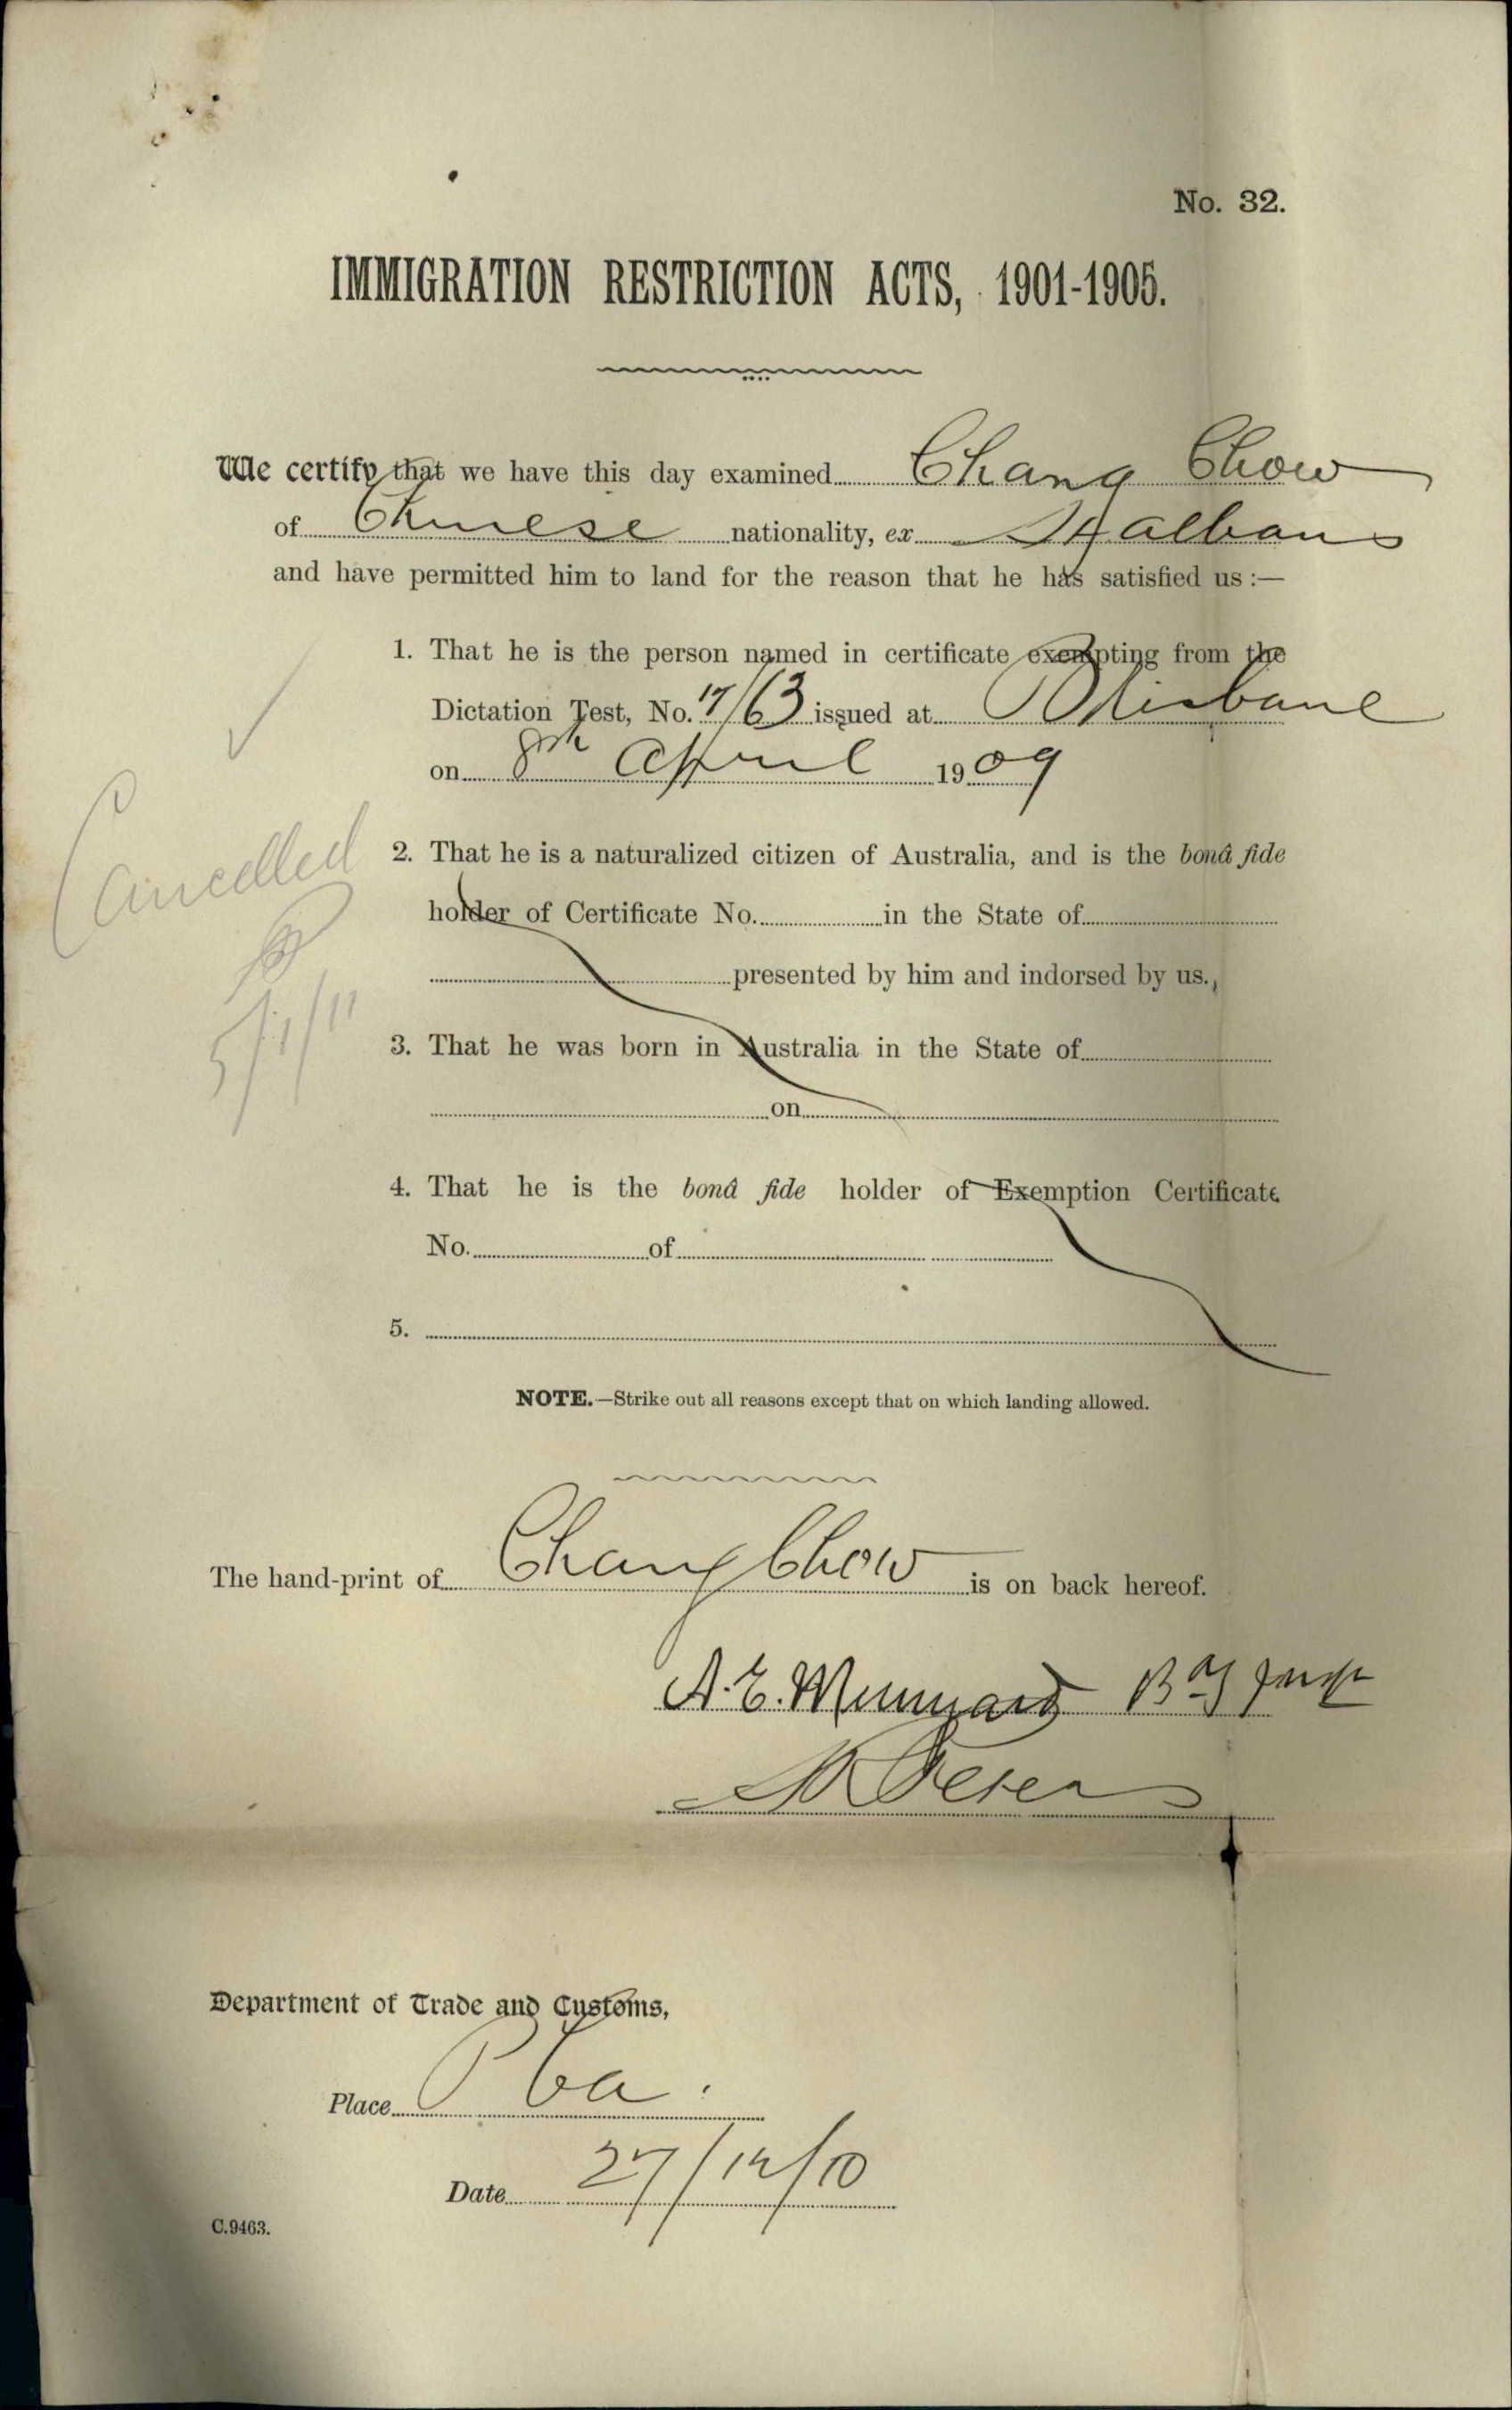 No. 32.
IMMIGRATION RESTRICTION ACTS, 1901-1905.
We certify that we have this day examined Chang Chow
of Chinese nationality, ex St Albans
and have permitted him to land for the reason that he has satisfied us :—
1. That he is the person named in certificate exempting from the
Dictation Test, No. 17/63 issued at Brisbane
on 8th April 1909
2. That he is a naturalized citizen of Australia, and is the bonâ fide
holder of Certificate No. in the State of
presented by him and indorsed by us.,
3. That he was born in Australia in the State of
on
4. That he is the bonâ fide holder of Exemption Certificate
No. of
5.
Cancelled
5/1/11
NOTE.—Strike out all reasons except that on which landing allowed.
The hand-print of Chang Chow is on back hereof.
A. E.
Department of Trade and Customs,
Place
Date 27/12/10
C.9463.